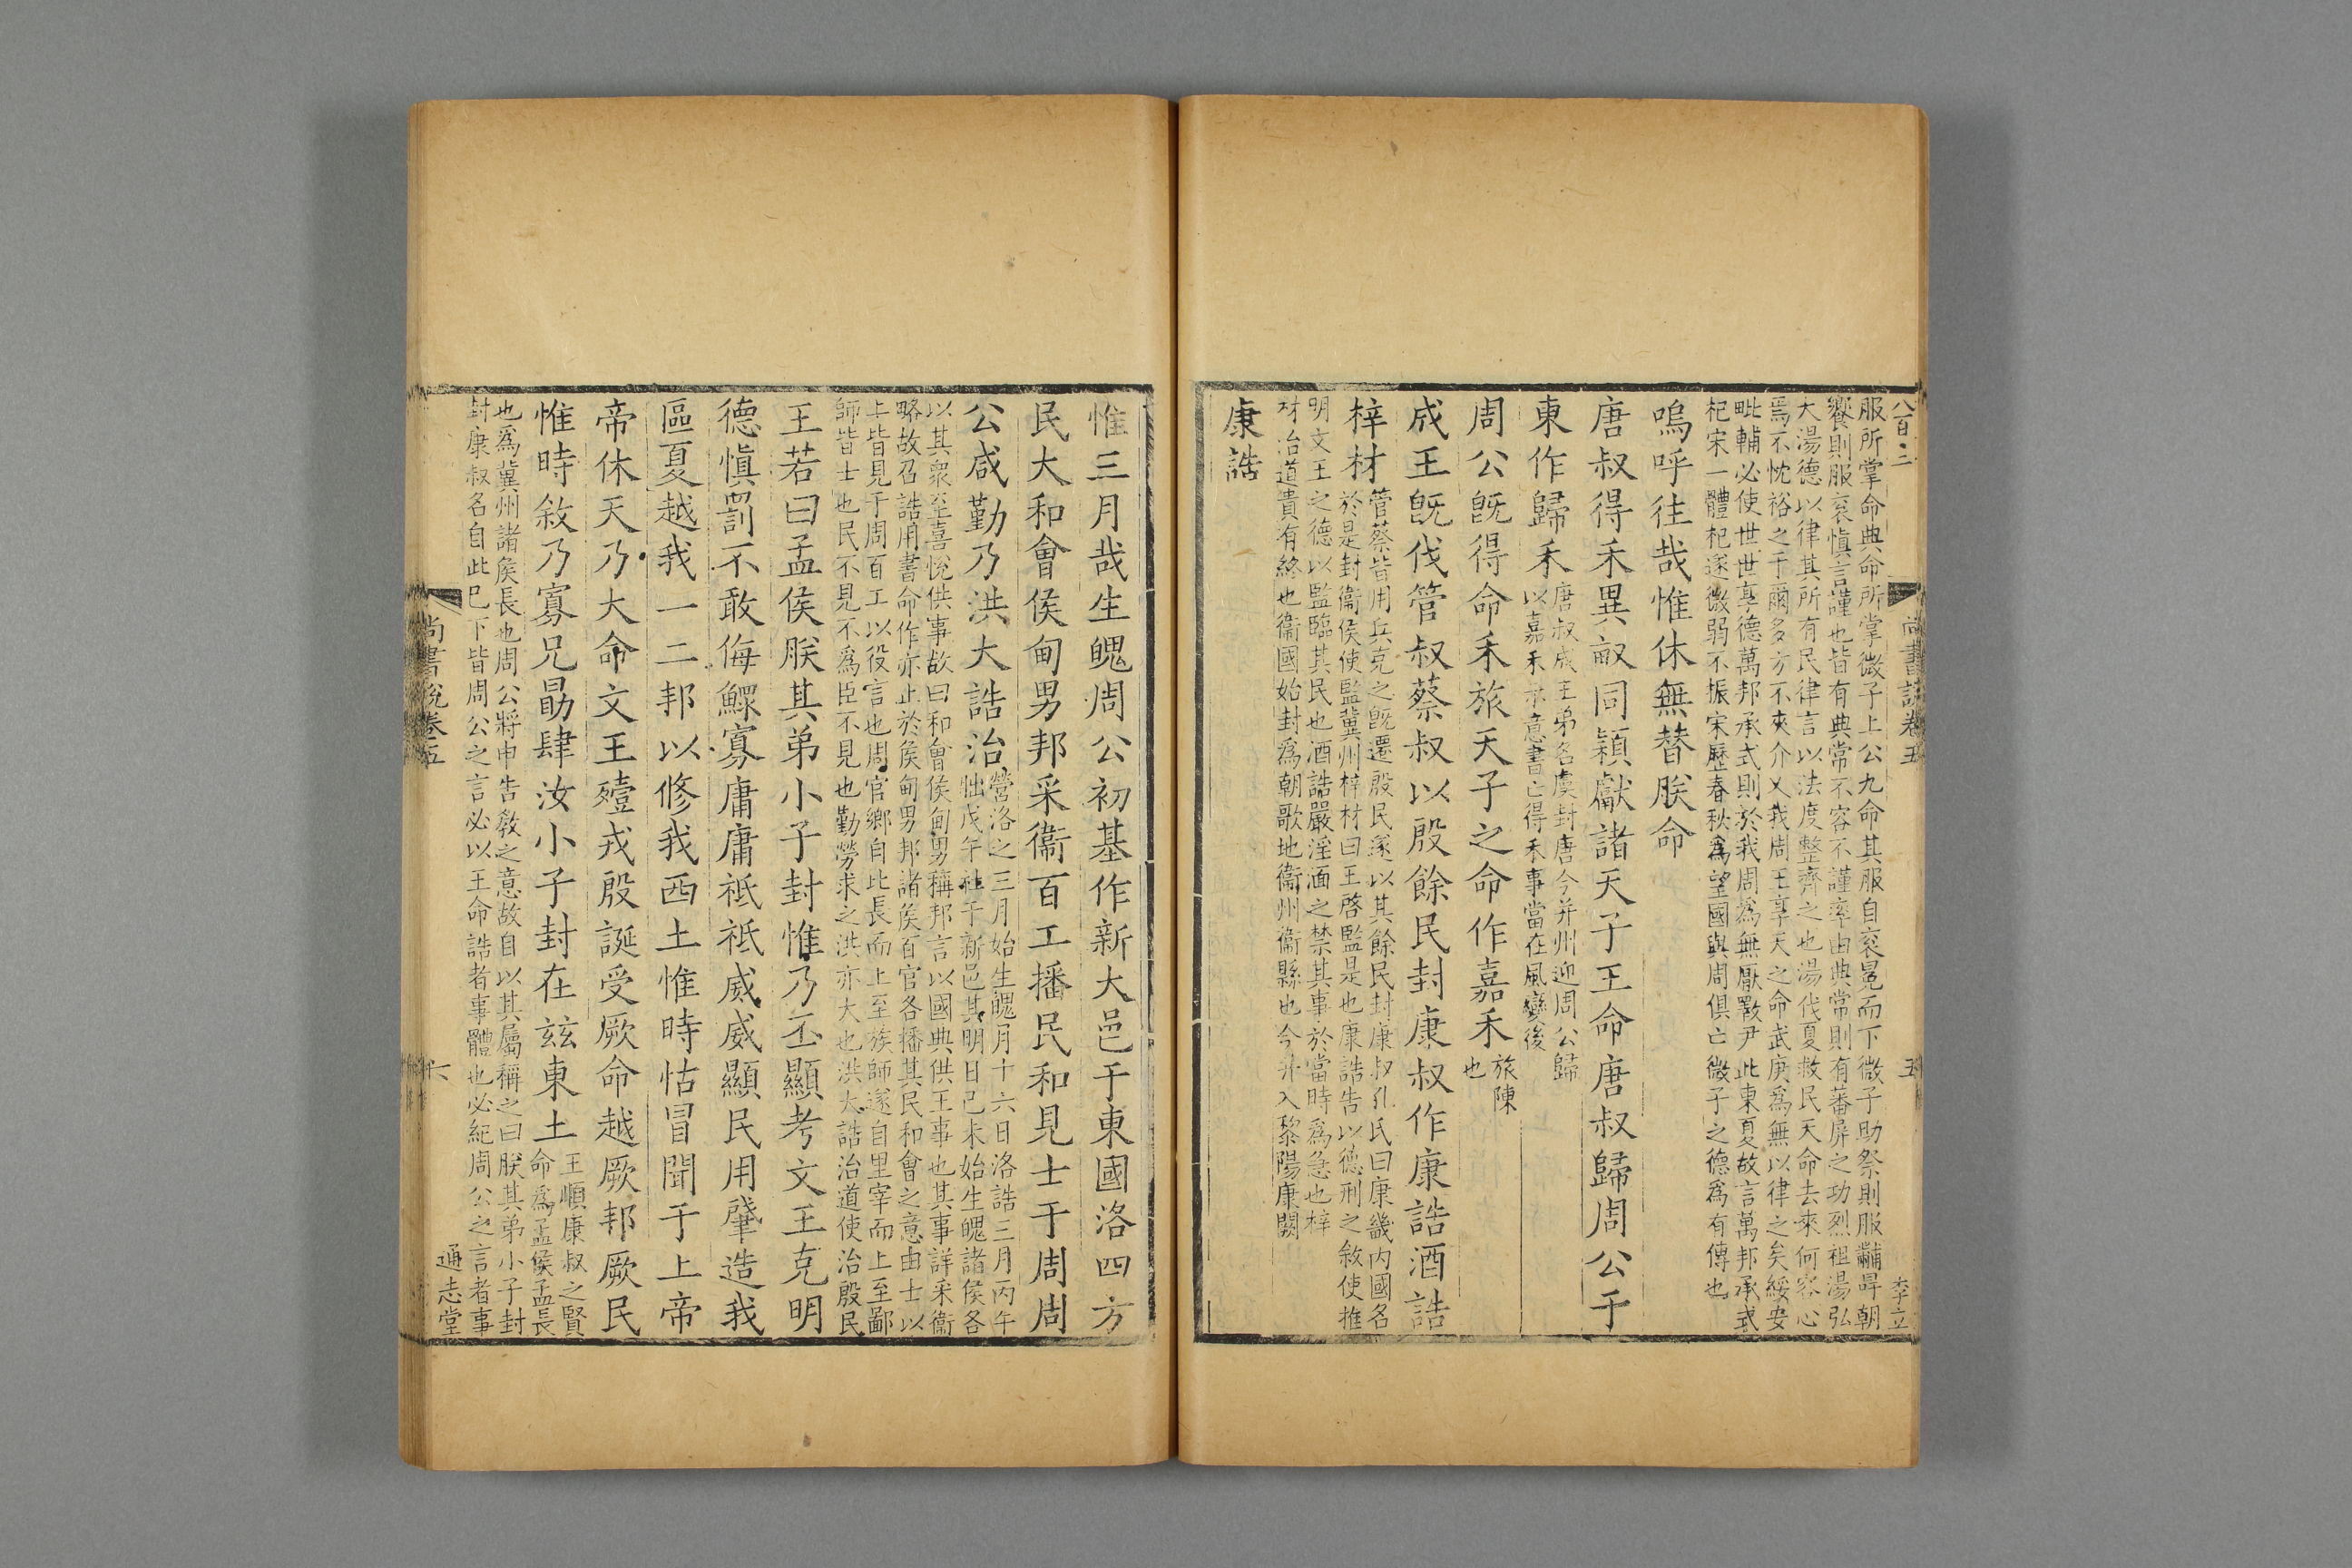 八百二
尚書說卷五
五
李立
服所掌命典命所掌微子上公九命其服自衮冕而下微子助祭則服黼冔朝
饗則服衮慎言謹也皆有典常不容不謹率由典常則有蕃屏之功烈祖湯弘
大湯德以律其所有民律言以法度整齊之也湯伐夏救民天命去來何容心
焉不忱裕之于爾多方不夾介乂我周王享天之命武庚爲無以律之矣綏安
毗輔必使世世享德萬邦承式則於我周爲無厭斁尹此東夏故言萬邦承式
杞宋一體杞遂微弱不振宋歷春秋爲望國與周俱亡微子之德爲有傳也
嗚呼往哉惟休無替朕命
唐叔得禾異畝同穎獻諸天子王命唐叔歸周公于
東作歸禾
唐叔成王弟名虞封唐今并州迎周公歸
以嘉禾示意書亡得禾事當在風變後
周公旣得命禾旅天子之命作嘉禾
旅陳
也
成王旣伐管叔蔡叔以殷餘民封康叔作康誥酒誥
梓材
管蔡皆用兵克之旣遷殷民遂以其餘民封康叔孔氏曰康畿内國名
於是封衞侯使監冀州梓材曰王啓監是也康誥告以德刑之敘使推
明文王之德以監臨其民也酒誥嚴淫湎之禁其事於當時爲急也梓
材治道貴有終也衞國始封爲朝歌地衞州衞縣也今并入黎陽康闕
康誥
惟三月哉生魄周公初基作新大邑于東國洛四方
民大和會侯甸男邦采衞百工播民和見士于周周
公咸勤乃洪大誥治
營洛之三月始生魄月十六日洛誥三月丙午
朏戊午社于新邑其明日已未始生魄諸侯各
以其衆至喜悅供事故曰和會侯甸男稱邦言以國典供王事也其事詳采衞
略故召誥用書命作亦止於侯甸男邦諸侯百官各播其民和會之意由士以
上皆見于周百工以役言也周官鄉自比長而上至族師遂自里宰而上至鄙
師皆士也民不見不爲臣不見也勤勞求之洪亦大也洪大誥治道使治殷民
王若曰孟侯朕其弟小子封惟乃丕顯考文王克明
德愼罰不敢侮鰥寡庸庸祗祗威威顯民用肇造我
區夏越我一二邦以修我西土惟時怙冒聞于上帝
帝休天乃大命文王殪戎殷誕受厥命越厥邦厥民
惟時敘乃寡兄勖肆汝小子封在兹東土
王順康叔之賢
命爲孟侯孟長
也爲冀州諸侯長也周公將申告敎之意故自以其屬稱之曰朕其弟小子封
封康叔名自此已下皆周公之言必以王命誥者事體也必紀周公之言者事
尚書說卷五
六
通志堂